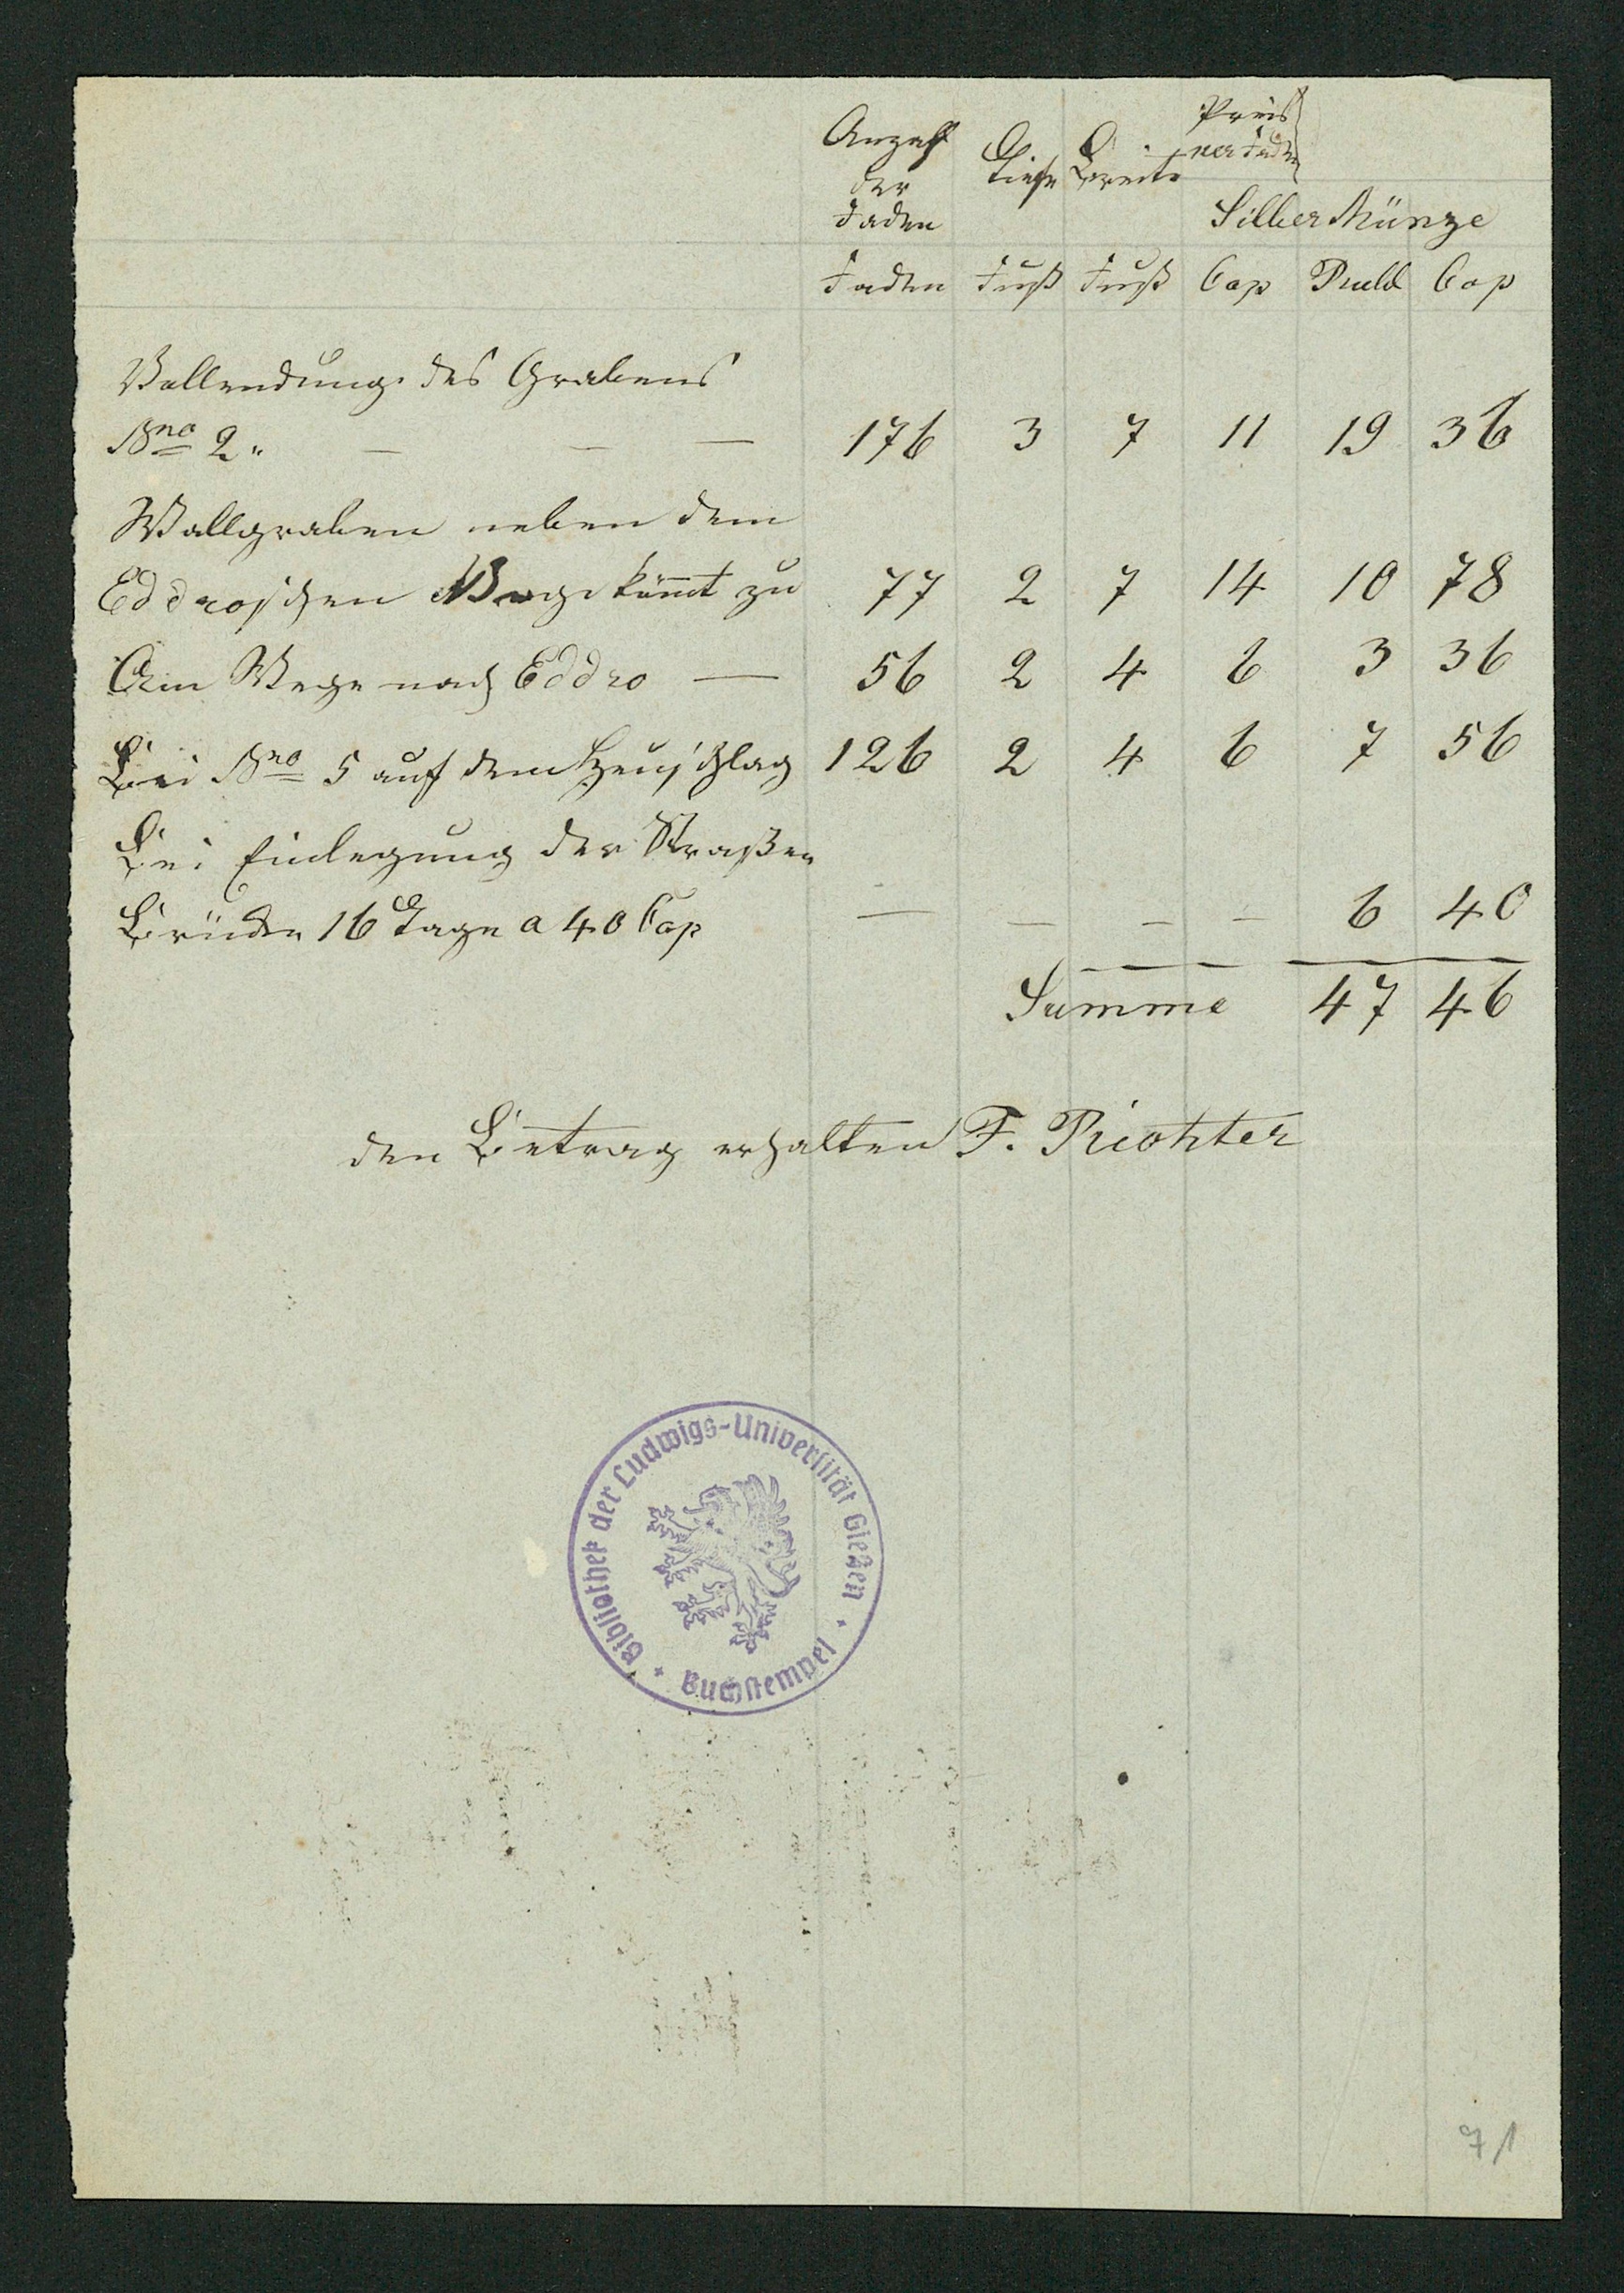 Preis
Anzahl Tiefe Breite per Faden
der
Faden Silber Münze
Faden Fuß Fuß Cop Rubl Cop
Vollendung des Grabens
No 2. — — — 176 3 7 11 19 36
Wallgraben neben dem
Eddroschen Wege kömt zu 77 2 7 14 10 78
Am Wege nach Eddro — 56 2 4 6 3 36
Bei No 5 auf dem Heuschlag 126 2 4 6 7 56
Bei Einlegung der Straßen
Brücke 16 Tage a 40 Cop — — — — 6 40
Summe 47 46
den Betrag erhalten F. Richter
Bibliothek der Ludwigs-Universität Gießen
Buchstempel
71